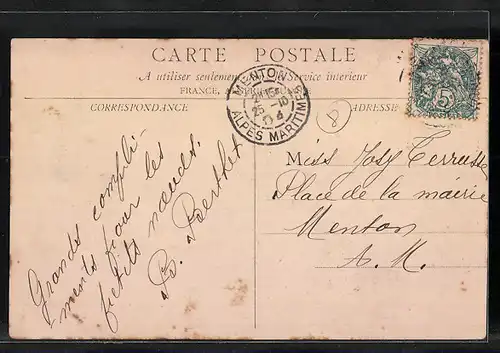 CARTE POSTALE
A utiliser seulement Service intérieur
FRANCE,
CORRESPONDANCE
ADRESSE
MENTON
25 -10
04
ALPES MARITIMES
5
8
Grands compli-
ments pour les
petits nœuds.
B. Berthet
Miss Josy
Place de la mairie
Menton
A. M.